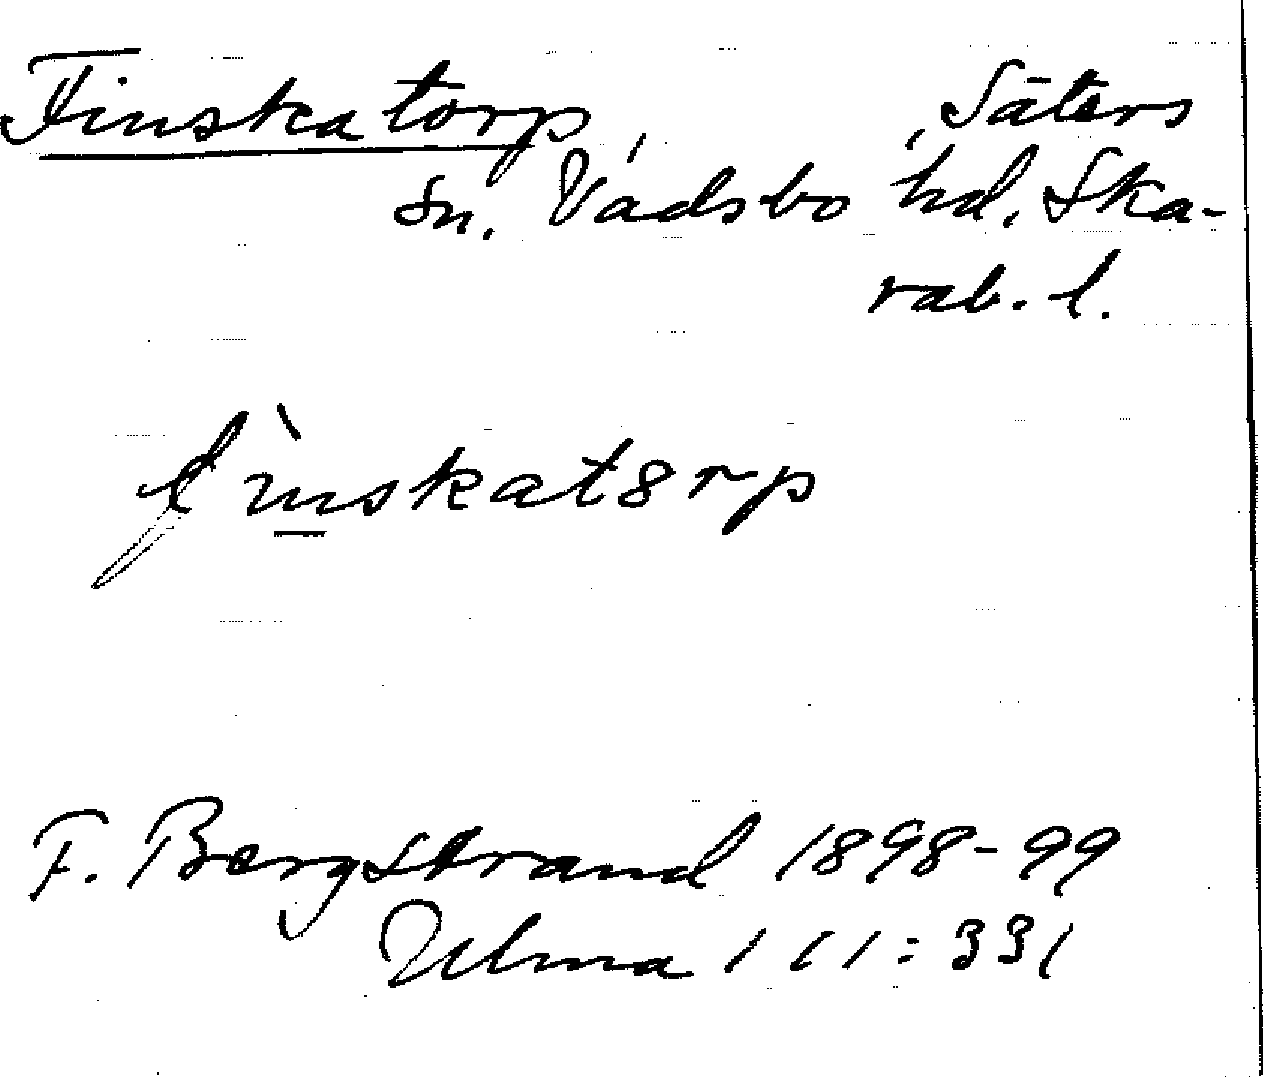 Finskatorp, Säters
sn. Vadsbo hd. Ska-
rab. l.
fìnskat8rp
F. Bergstrand 1898-99
Ulma 111:331